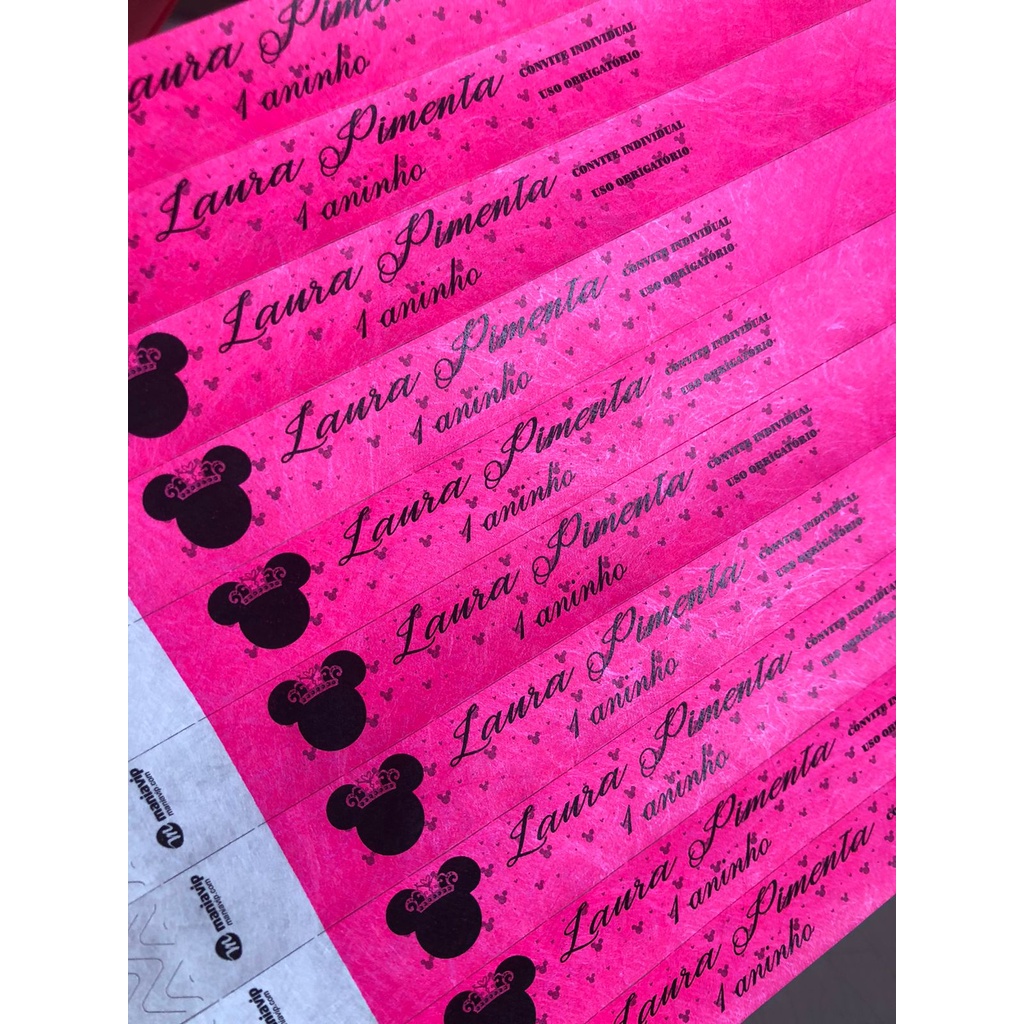 aura Pimen
1 aninho
Laura Pimenta
1 aninho
CONVITE INDIVIDUAL
USO OBRIGATÓRIO
Laura Pimenta
1 aninho
CONVITE INDIVIDUAL
USO OBRIGATÓRIO
Laura Pimenta
1 aninho
CONVITE INDIVIDUAL
USO OBRIGATÓRIO
Laura Pimenta
1 aninho
CONVITE INDIVIDUAL
USO OBRIGATÓRIO
Laura Pimenta
1 aninho
CONVITE INDIVIDUAL
USO OBRIGATÓRIO
Laura Pimenta
1 aninho
CONVITE INDIVIDUAL
USO OBRIGATÓRIO
Laura Pimenta
1 aninho
CONVITE INDIVIDUAL
USO OBRIGATÓR
Laura Pimenta
1 aninho
CONVITE IN
USO OB
Laura Pimenta
1 aninho
maniavip
maniavip.com
maniavip
maniavip.com
maniavip
maniavip.com